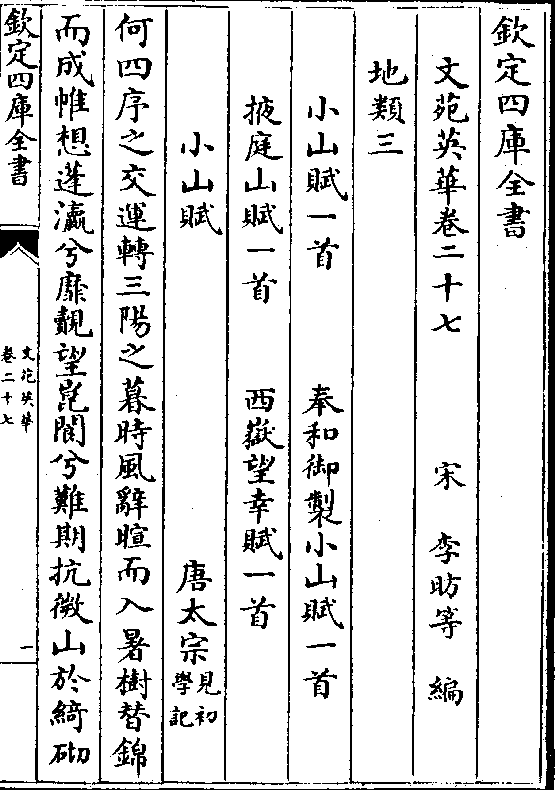 欽定四庫全書
文苑英華卷二十七　宋　李昉等　編
地類三
小山賦一首　奉和御製小山賦一首
掖庭山賦一首　西嶽望幸賦一首
小山賦　唐太宗見初學記
何四序之交運轉三陽之暮時風辭暄而入暑樹替錦
而成帷想蓬瀛兮靡覿望崑閬兮難期抗微山於綺砌
欽定四庫全書
文苑英華
卷二十七
一